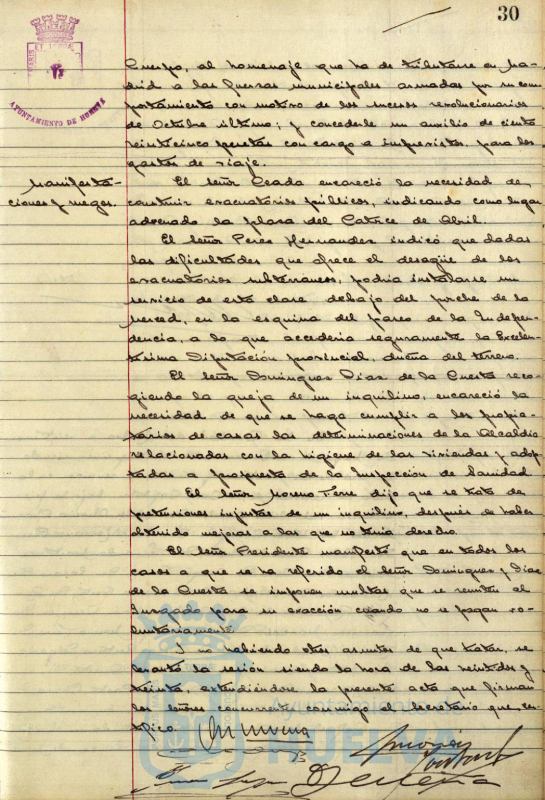 30
AYUNTAMIENTO DE HUELVA
Cuerpo, al homenaje que ha de tributarse en Ma-
drid a las Guardias municipales armadas por su com-
portamiento con motivo de los sucesos revolucionarios
de Octubre último; y concederle un auxilio de ciento
veinticinco pesetas con cargo a imprevistos, para los
gastos de viaje.
Manifesta-
ciones y ruegos.
El señor Ceada encareció la necesidad de
construir evacuatorios públicos, indicando como lugar
adecuado la plaza del Catorce de Abril.
El señor Perez Hernandez indicó que dadas
las dificultades que ofrece el desagüe de los
evacuatorios subterraneos, podria instalarse un
servicio de esta clase debajo del porche de la
Merced, en la esquina del paseo de la Indepen-
dencia, a lo que accederia seguramente la Excelen-
tísima Diputación provincial, dueña del terreno.
El señor Dominguez Diaz de la Cuesta reco-
giendo la queja de un inquilino, encareció la
necesidad de que se haga cumplir a los propie-
tarios de casas las determinaciones de la Alcaldia
relacionadas con la higiene de las viviendas y adop-
tadas a propuesta de la Inspección de Sanidad
El señor Moreno Ferre dijo que se trata de
pretensiones injustas de un inquilino, después de haber
obtenido mejoras a las que no tenia derecho.
El señor Presidente manifestó que en todos los
casos a que se ha referido el señor Dominguez y Diaz
de la Cuesta se imponen multas que se remiten al
Juzgado para su exacción cuando no se pagan vo-
luntariamente
I no habiendo otros asuntos de que tratar, se
levantó la sesión siendo la hora de las veintidos y
treinta, extendiéndose la presente acta que firman
los señores concurrentes conmigo el Secretario que cer-
tifico.
Ayuntamiento de
HUELVA